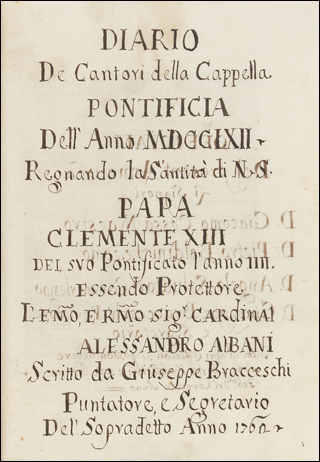 DIARIO
De Cantori della Cappella
PONTIFICIA
Dell'Anno MDCCLXII
Regnando la Santità di N. S.
PAPA
CLEMENTE XIII
DEL SVO Pontificato l'anno IIII.
Essendo Protettore
L'EMO, E RMO Sigr CARdiNAl
ALESSANDRO AlBANI
Scritto da Giuseppe Bracceschi
Puntatore, e Segretario
Del' Sopradetto Anno 1762